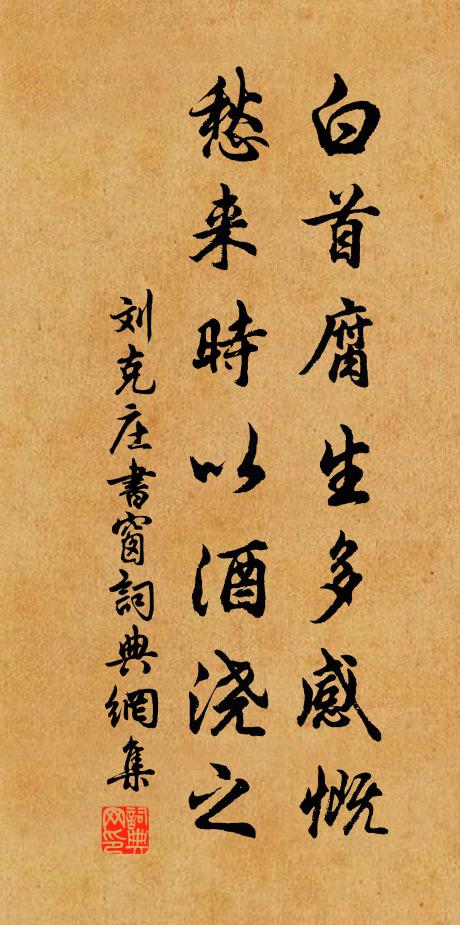 白首腐生多感慨
愁来時以酒浇之
刘克庄書窗詞典網集
詞典网印